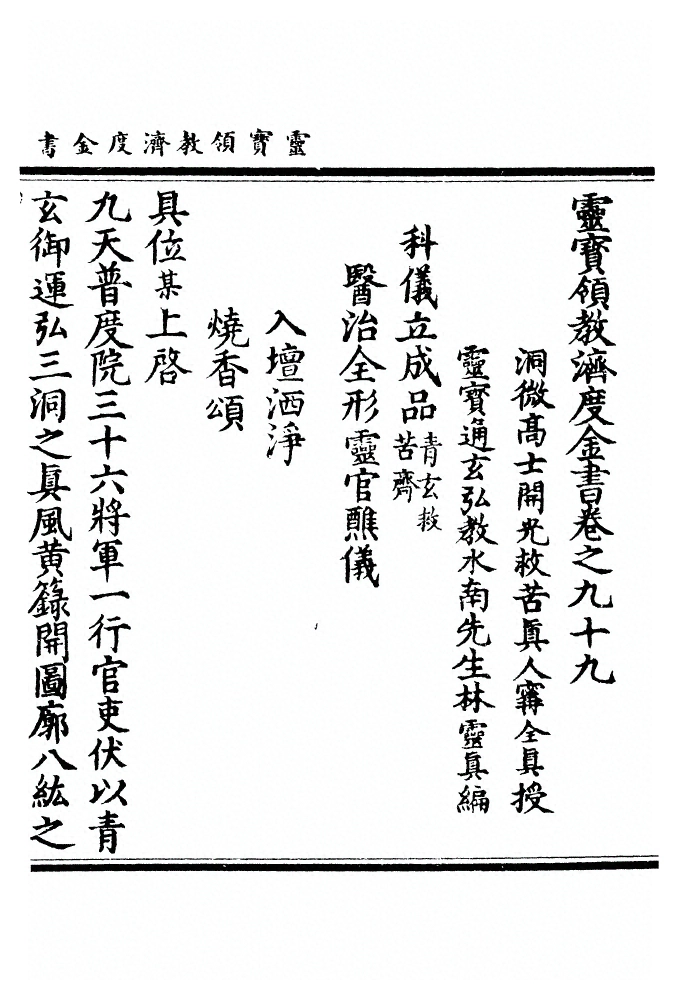 靈寶領教濟度金書
靈寶領教濟度金書卷之九十九
洞微高士開光救苦眞人寗全眞授
靈寶通玄弘教水南先生林靈眞編
科儀立成品青玄救苦齋
醫治全形靈官醮儀
入壇洒淨
燒香頌
具位某上啓
九天普度院三十六將軍一行官吏伏以青
玄御運弘三洞之眞風黃籙開圖廓八紘之